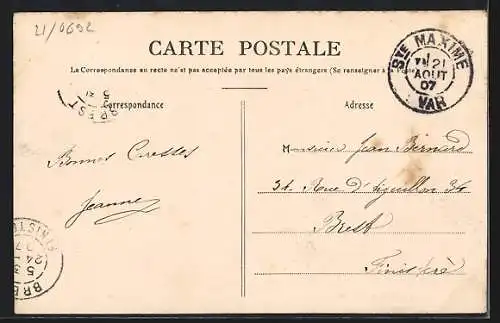 21/0692
CARTE POSTALE
La Correspondance au recto n'est pas acceptée par tous les pays étrangers (Se renseigner à la
Correspondance
Adresse
STE MAXIME
21
AOUT
07
VAR
BREST
Bonnes Caresses
Jeanne
Monsieur Jean Bernard
34 Rue d'Aiguillon 34
Brest
Finistère
BRE
FINIST
24